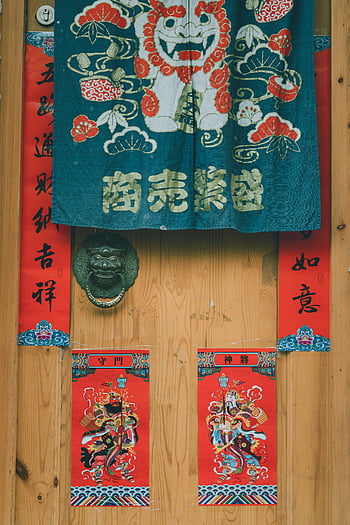 商売繁盛
五路通財納吉祥
如意
守門
神將